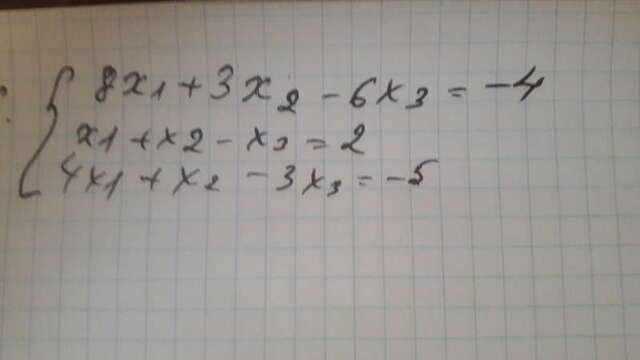 8x₁ + 3x₂ - 6x₃ = -4
x1 + x2 - x₃ = 2
4x1 + x₂ - 3x₃ = -5